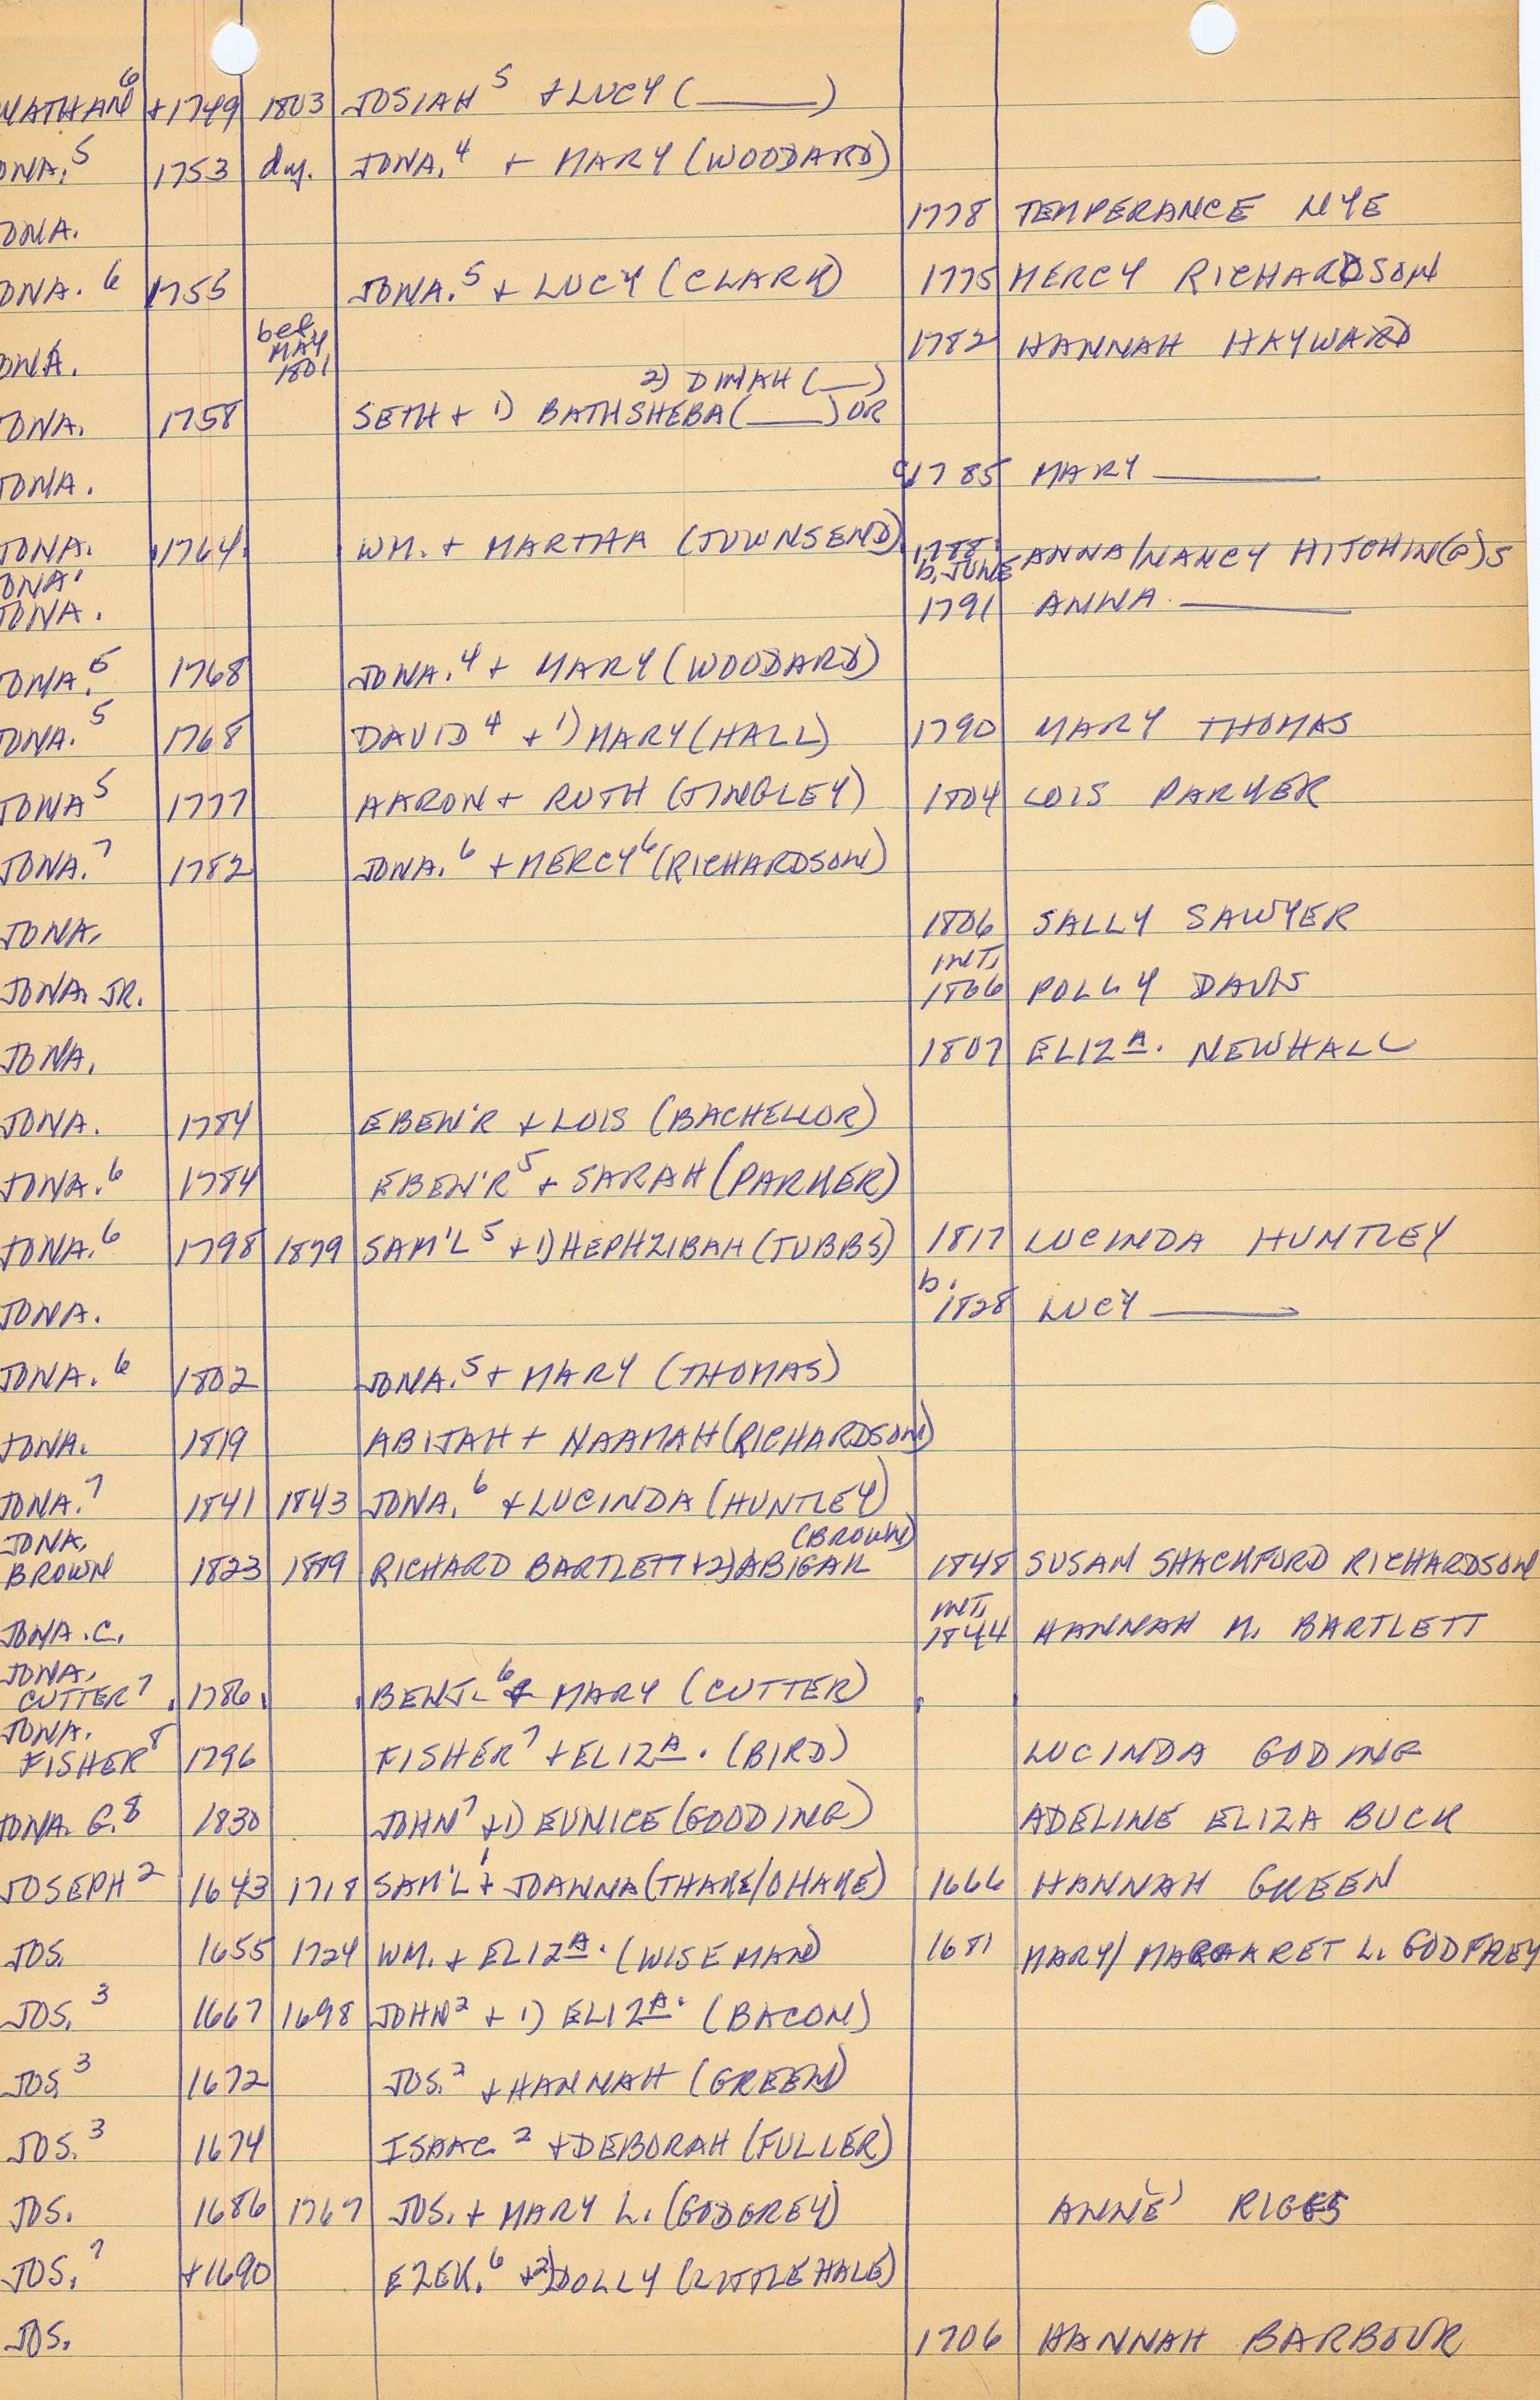 NATHAN⁶ +1749 1803 JOSIAH⁵ + LUCY (____)
ONA.⁵ 1753 d.y. JONA.⁴ + MARY (WOODARD)
ONA. 1778 TEMPERANCE NYE
ONA.⁶ 1755 JONA.⁵ + LUCY (CLARK) 1775 MERCY RICHARDSON
ONA. bef. MAY 1801 1782 HANNAH HAYWARD
2) DINAH (__)
ONA. 1758 SETH + 1) BATHSHEBA (____) OR
JONA. c1785 MARY ____
JONA. 1764 WM. + MARTHA (TOWNSEND) 1788 ANNA/NANCY HITCHIN(G)S
ONA. b. JUNE
JONA. 1791 ANNA ____
ONA.⁵ 1768 JONA.⁴ + MARY (WOODARD)
ONA.⁵ 1768 DAVID⁴ + 1) MARY (HALL) 1790 MARY THOMAS
JONA⁵ 1777 AARON + RUTH (TINGLEY) 1804 LOIS PARKER
JONA.⁷ 1782 JONA.⁶ + MERCY⁶ (RICHARDSON)
JONA. 1806 SALLY SAWYER
INT.
JONA. JR. 1806 POLLY DAVIS
JONA. 1807 ELIZA. NEWHALL
JONA. 1784 EBEN'R + LOIS (BACHELLOR)
JONA.⁶ 1784 EBEN'R⁵ + SARAH (PARKER)
JONA.⁶ 1798 1879 SAM'L⁵ + 1) HEPHZIBAH (TUBBS) 1817 LUCINDA HUNTLEY
JONA. b. 1828 LUCY ____
JONA.⁶ 1802 JONA.⁵ + MARY (THOMAS)
JONA. 1819 ABIJAH + NAAMAH (RICHARDSON)
JONA.⁷ 1841 1843 JONA.⁶ + LUCINDA (HUNTLEY)
JONA. (BROWN)
BROWN 1823 1889 RICHARD BARTLETT + 2) ABIGAIL 1848 SUSAN SHACKFORD RICHARDSON
INT.
JONA. C. 1844 HANNAH M. BARTLETT
JONA.
CUTTER⁷ 1786 BENJ.⁶ + MARY (CUTTER)
JONA.
FISHER⁸ 1796 FISHER⁷ + ELIZA. (BIRD) LUCINDA GODING
JONA. G.⁸ 1830 JOHN⁷ + 1) EUNICE (GOODING) ADELINE ELIZA BUCK
JOSEPH² 1643 1718 SAM'L¹ + JOANNA (THAKE/OHAKE) 1666 HANNAH GREEN
JOS. 1655 1724 WM. + ELIZA. (WISEMAN) 1681 MARY/MARGARET L. GODFREY
JOS.³ 1667 1698 JOHN² + 1) ELIZA. (BACON)
JOS.³ 1672 JOS.² + HANNAH (GREEN)
JOS.³ 1674 ISAAC² + DEBORAH (FULLER)
JOS. 1686 1767 JOS. + MARY L. (GODGREY) ANN(E) RIGGS
JOS.⁷ +1690 EZEK.⁶ + 2) DOLLY (LITTLEHALE)
JOS. 1706 HANNAH BARBOUR